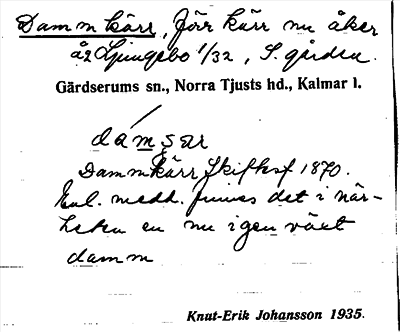 Dammkärr, förr kärr nu åker
å2 Ljungsbo 1/32, S. gården.
Gärdserums sn., Norra Tjusts hd., Kalmar l.
Dammkärr Skifksf 1870.
Enl. medd. finnes det i när-
heten en nu igenväxt
damm
Knut-Erik Johansson 1935.